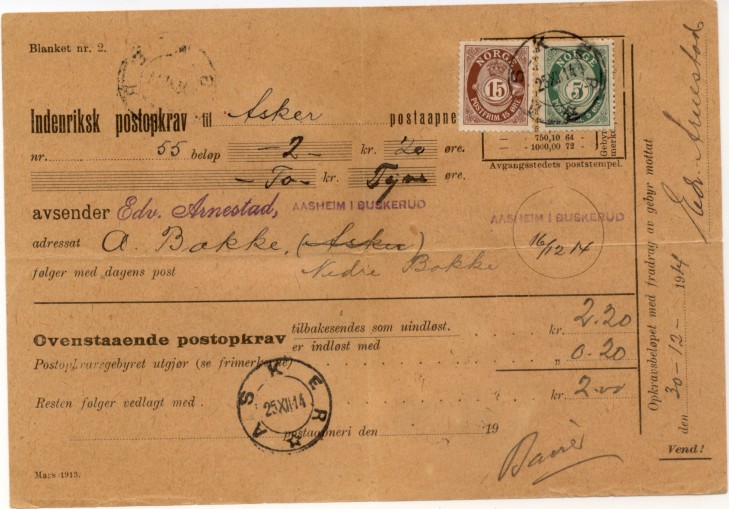 Blanket nr. 2.
NORGE 15 POSTFRIM 15 ØRE
NORGE 5
ASKER 25 XII 14
Indenriksk postopkrav til Asker postaapne
750,10 64 —
— 1000,00 72 —
Gebyr
merke
nr. 55 beløp — 2 — kr. 20 øre.
Avgangsstedets poststempel.
— To — kr. Tyve øre.
avsender Edv. Arnestad, AASHEIM I BUSKERUD
AASHEIM I BUSKERUD
adressat A. Bakke, (Asker)
16/12 14
følger med dagens post Nedre Bakke
Ovenstaaende postopkrav tilbakesendes som uindløst. kr. 2.20
er indløst med
Postopkravsgebyret utgjør (se frimerkerne) " 0.20
Resten følger vedlagt med kr. 2.00
ASKER 25 XII 14
postaapneri den 19
Mars 1913.
Opkravsbeløpet med fradrag av gebyr mottat
den 30-12- 1914
Edv. Arnestad
Vend!